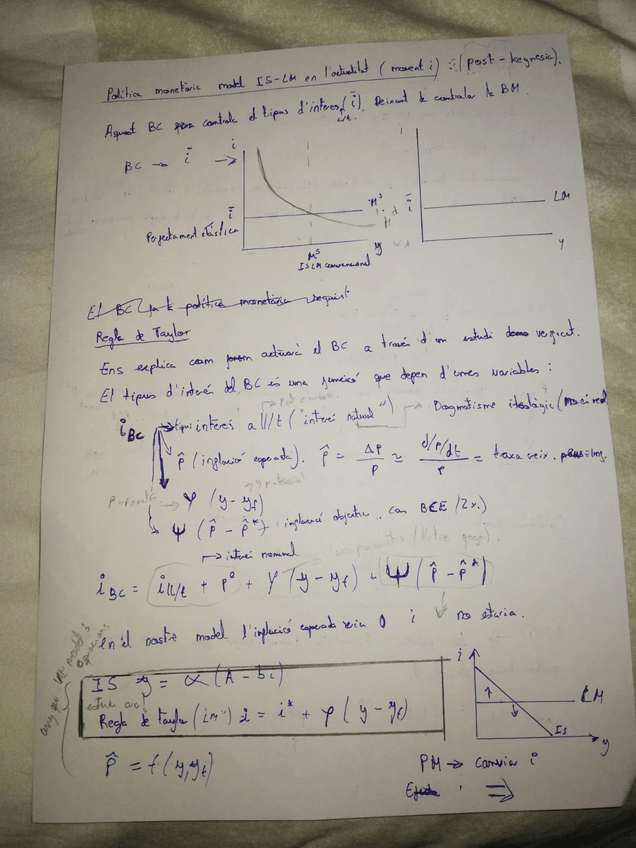 Política monetària model IS-LM en l'actualitat (moment i) : (post-keynesia).
Aquest BC controla el tipus d'interes (i̅). Deixant de controlar la BM.
BC → i̅ →
i
i̅
M^s
Perfectament elàstica
y
M^s
IS LM convencional
i
i̅
LM
y
El BC fa la política monetària seguint
Regla de Taylor
Ens explica com actuarà el BC a través d'un estudi verificat.
El tipus d'interés del BC és una funció que depen d'unes variables :
i_BC → tipus interés a ll/t ("interés natural") → Dogmatisme ideològic
p̂ (inflació esperada). p̂ = Δp/p ≈ (dp/dt)/p = taxa creix.
→ φ (y - y_f)
→ ψ (p̂ - p̂*) inflació objectiu. con BCE (2%)
→ interés nominal
i_BC = i_ll/t + p^e + φ (y - y_f) + ψ (p̂ - p̂*)
en el nostre model l'inflació esperada seria 0 i no estaria.
IS y = α (A - bi)
Regla de Taylor i = i* + φ (y - y_f)
p̂ = f(y, y_f)
i
LM
IS
y
PM → canvia i
⇒